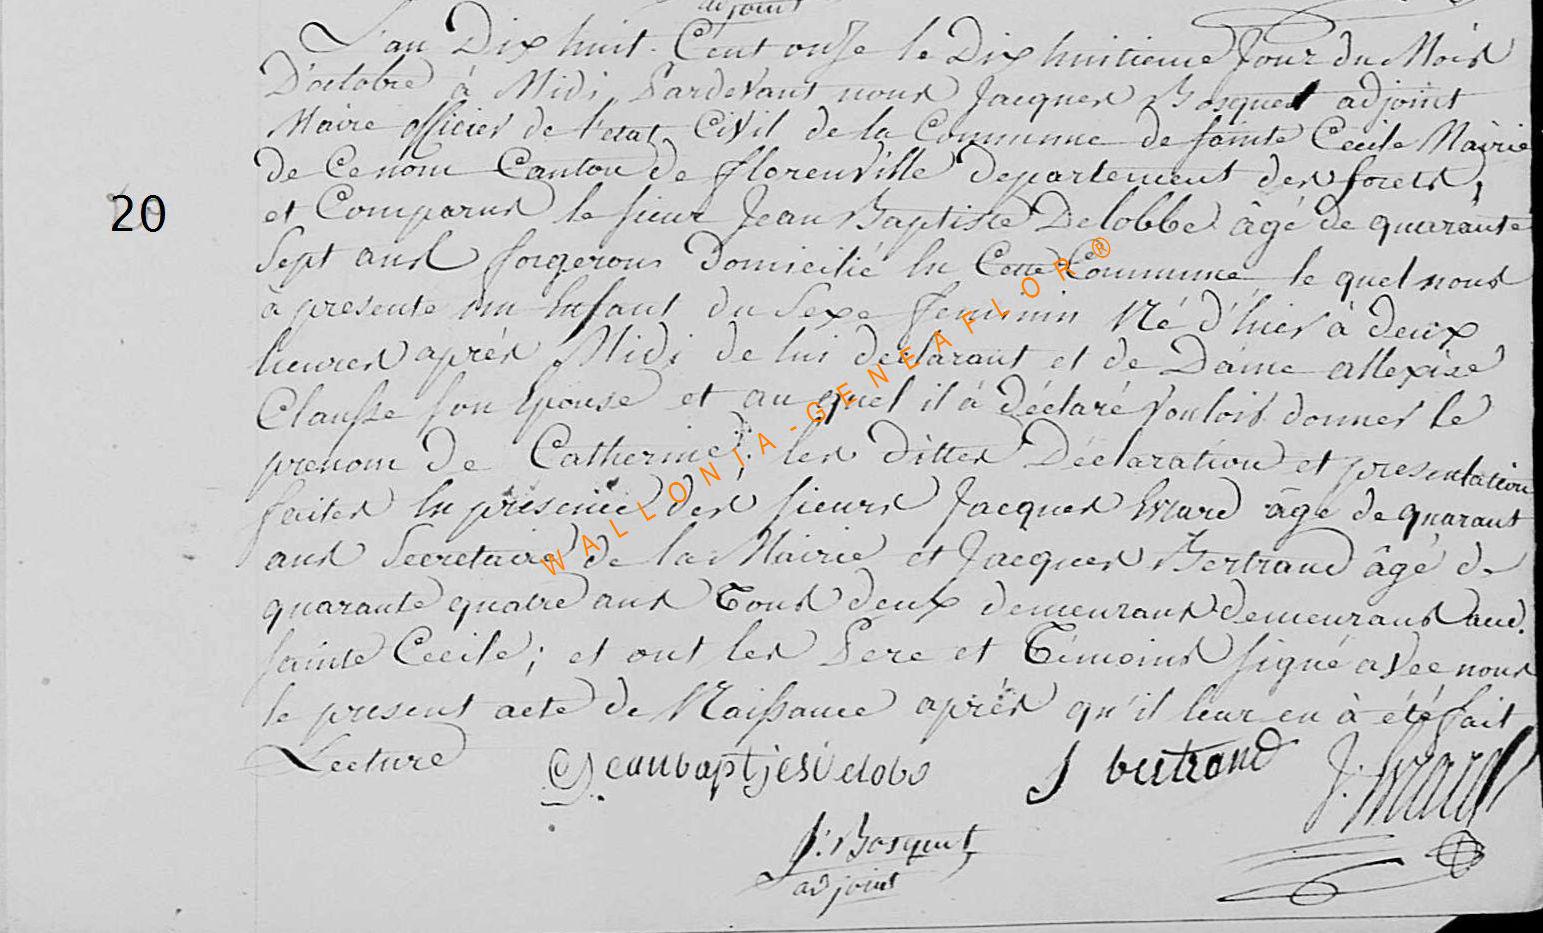 adjoint
L'an Dix huit Cent onze le Dix huitieme Jour du Mois
D'octobre à Midi Pardevant nous Jacques Bosquet adjoint
Maire officier de l'etat Civil de la Commune de sainte Cecile Mairie
de Ce nom Canton de florenville departement des forets,
et Comparus le sieur Jean Baptiste Delobbe âgé de quarante
Sept ans forgerons Domicilié En Cette Commune le quel nous
à presenté un Enfant du Sexe feminin Né d'hier à deux
heures après Midi de lui declarant et de Dame allexise
Clausse son Epouse et au quel il à déclaré vouloir donner le
prenom de Catherine ; les dittes Déclaration et presentation
faites En présence des sieurs Jacques Evrard âgé de quarant
ans Secretaire de la Mairie et Jacques Bertrand âgé de
quarante quatre ans Tous deux demeurans demeurans aud.
sainte Cecile ; et ont les Pere et Témoins signé avec nous
le present acte de Naissance après qu'il leur en à été fait
Lecture Jeanbaptiest delobs J bertrand J. Evrard
J. Bosquet
adjoint
20
WALLONIA-GENEAFLOR®